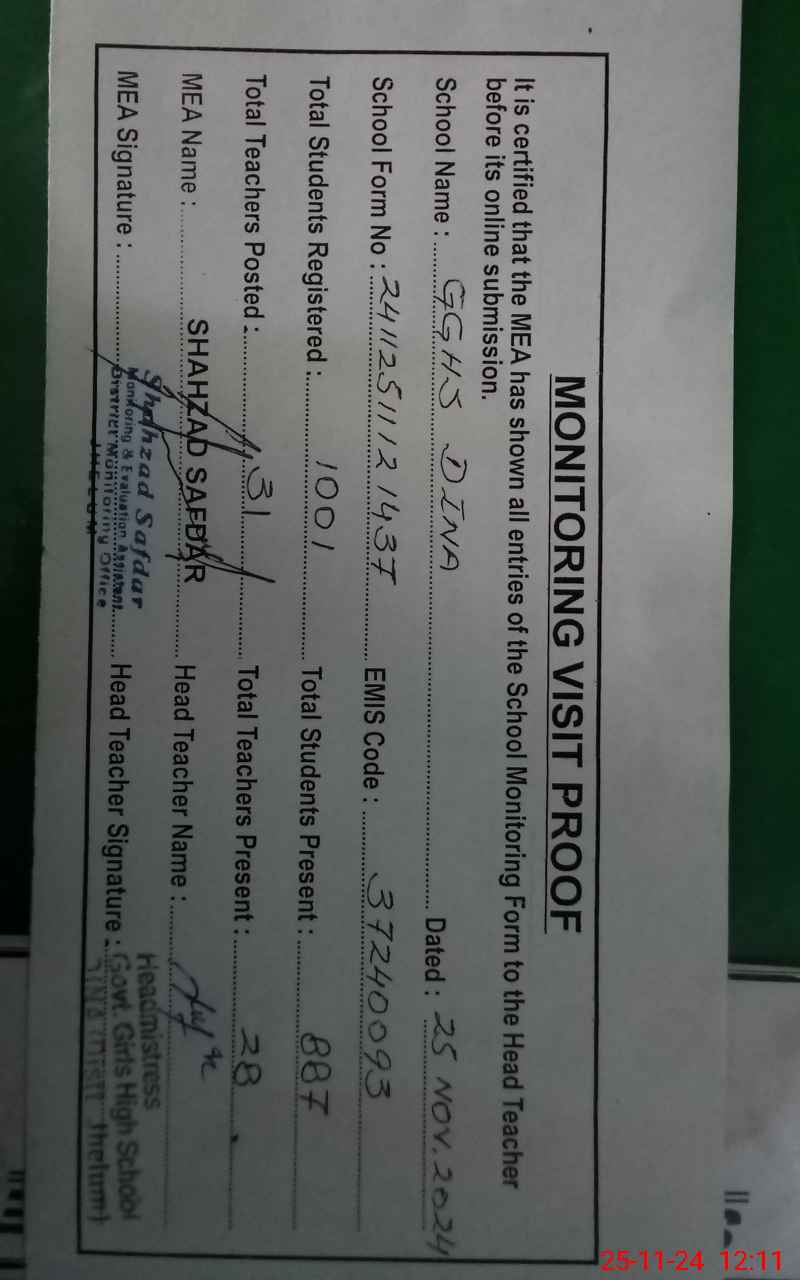 MONITORING VISIT PROOF
It is certified that the MEA has shown all entries of the School Monitoring Form to the Head Teacher
before its online submission.
School Name : GGHS DINA Dated : 25 NOV. 2024
School Form No : 2411251112 1437 EMIS Code : 37240093
Total Students Registered : 1001 Total Students Present : 887
Total Teachers Posted : 31 Total Teachers Present : 28
MEA Name : SHAHZAD SAFDAR Head Teacher Name :
MEA Signature : Head Teacher Signature :
Shahzad Safdar
Monitoring & Evaluation Assistant
District Monitoring Office
JHELUM
Headmistress
Govt. Girls High School
25-11-24 12:11